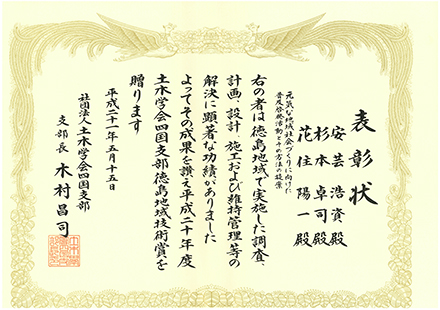 表彰状
安芸浩資殿
杉本卓司殿
花住陽一殿
元気な地域社会づくりに向けた
普及啓発活動とその方法の提案
右の者は徳島地域で実施した調査、
計画、設計、施工および維持管理等の
解決に顕著な功績がありました
よってその成果を讃え平成二十年度
土木学会四国支部徳島地域技術賞を
贈ります
平成二十一年五月十五日
社団法人土木学会四国支部
支部長 木村昌司